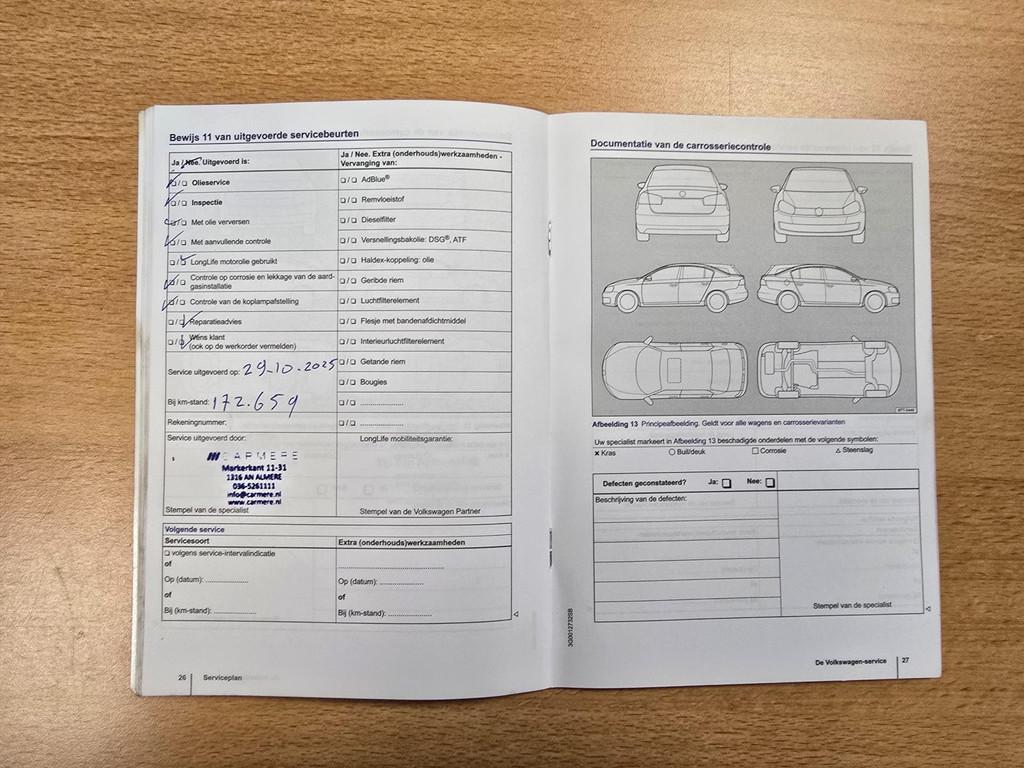 Bewijs 11 van uitgevoerde servicebeurten
Ja / Nee. Uitgevoerd is:
❏ / ❏ Olieservice
❏ / ❏ Inspectie
❏ / ❏ Met olie verversen
❏ / ❏ Met aanvullende controle
❏ / ❏ LongLife motorolie gebruikt
❏ / ❏ Controle op corrosie en lekkage van de aard-
gasinstallatie
❏ / ❏ Controle van de koplampafstelling
❏ / ❏ Reparatieadvies
❏ / ❏ Wens klant
(ook op de werkorder vermelden)
Service uitgevoerd op: 29-10-2025
Bij km-stand: 172.659
Rekeningnummer:
Ja / Nee. Extra (onderhouds)werkzaamheden -
Vervanging van:
❏ / ❏ AdBlue®
❏ / ❏ Remvloeistof
❏ / ❏ Dieselfilter
❏ / ❏ Versnellingsbakolie: DSG®, ATF
❏ / ❏ Haldex-koppeling: olie
❏ / ❏ Geribde riem
❏ / ❏ Luchtfilterelement
❏ / ❏ Flesje met bandenafdichtmiddel
❏ / ❏ Interieurluchtfilterelement
❏ / ❏ Getande riem
❏ / ❏ Bougies
❏ / ❏ ......................
❏ / ❏ ......................
Service uitgevoerd door:
CARMERE
Markerkant 11-31
1316 AN ALMERE
036-5261111
info@carmere.nl
www.carmere.nl
Stempel van de specialist
LongLife mobiliteitsgarantie:
Stempel van de Volkswagen Partner
Volgende service
Servicesoort
❏ volgens service-intervalindicatie
of
Op (datum): ......................
of
Bij (km-stand): ......................
Extra (onderhouds)werkzaamheden
Op (datum): ......................
of
Bij (km-stand): ......................
26 Serviceplan
Documentatie van de carrosseriecontrole
Afbeelding 13 Principeafbeelding. Geldt voor alle wagens en carrosserievarianten
Uw specialist markeert in Afbeelding 13 beschadigde onderdelen met de volgende symbolen:
× Kras ○ Buil/deuk □ Corrosie △ Steenslag
Defecten geconstateerd? Ja: ❏ Nee: ❏
Beschrijving van de defecten:
Stempel van de specialist
3G0012732SB
De Volkswagen-service 27